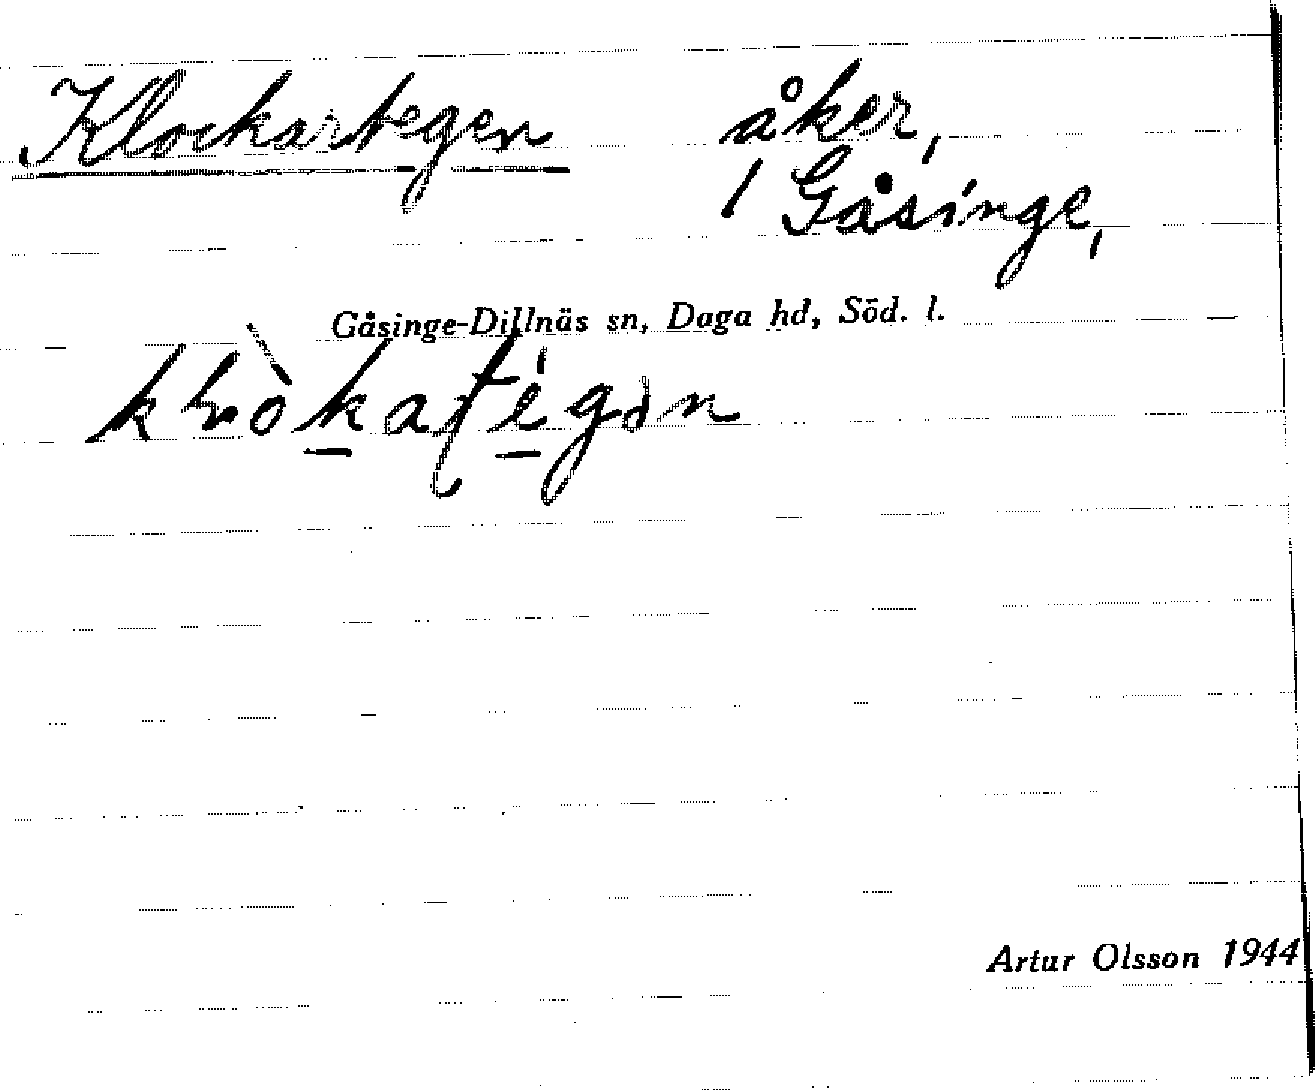 Klockartegen åker,
1 Gåsinge,
Gåsinge-Dillnäs sn, Daga hd, Söd. l.
Artur Olsson 1944